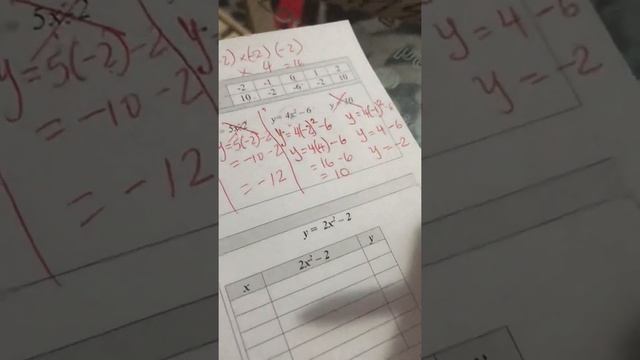 -2) × (-2) (-2)
× 4 = 16
-2 -1 0 1 2
10 -2 -6 -2 10
5x-2
y = 4x² - 6
y
10
y=5(-2)-2
= -10 -2
= -12
y=4(-2)²-6
y=4(4)-6
= 16 - 6
= 10
y=4(-1)²-6
y=4-6
y=-2
y = 2x² - 2
x 2x² - 2 y
5x-2
y=5(-2)-2
= -10 -2
= -12
y=4-6
y=-2